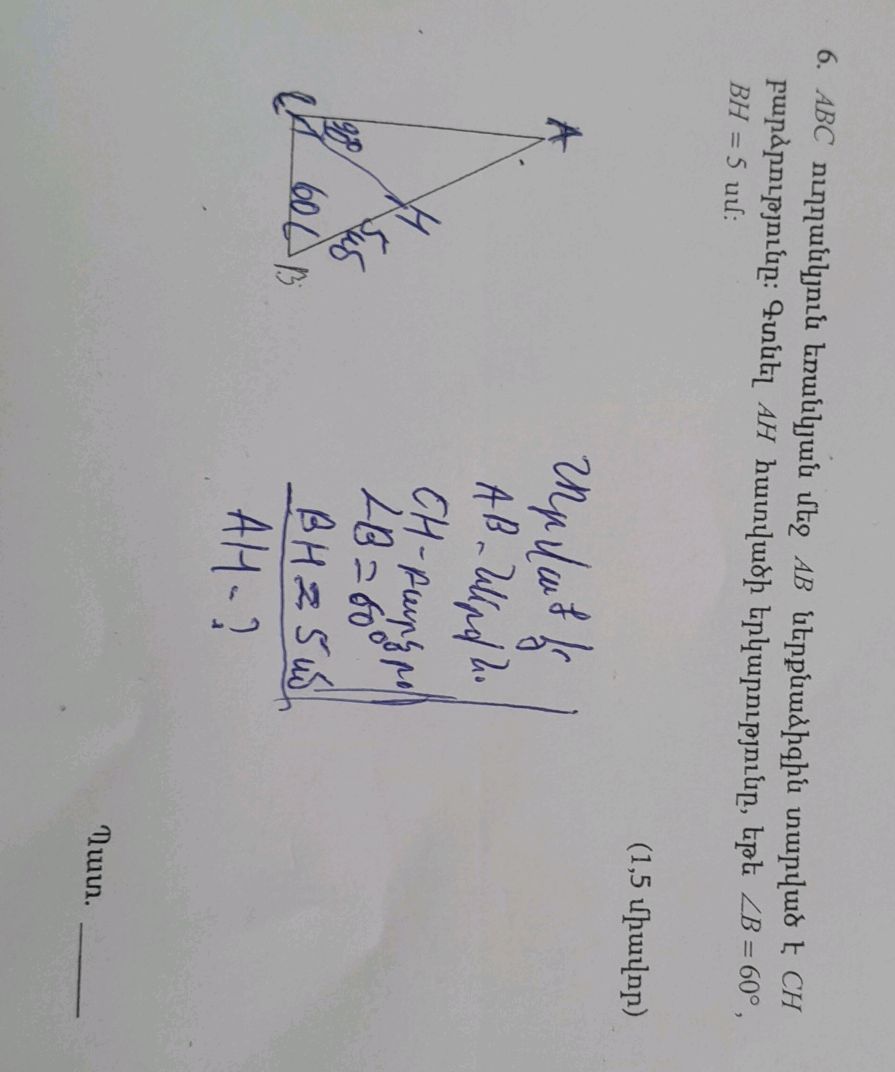 6. ABC ուղղանկյուն եռանկյան մեջ AB ներքնաձիգին տարված է CH
բարձրությունը: Գտնել AH հատվածի երկարությունը, եթե ∠B = 60°,
BH = 5 սմ:
(1,5 միավոր)
A
C
90°
H
5
սմ
60
B
Տրված է
AB - ներքն.
CH - բարձր
∠B = 60°
BH = 5 սմ
AH - ?
Պատ. ______